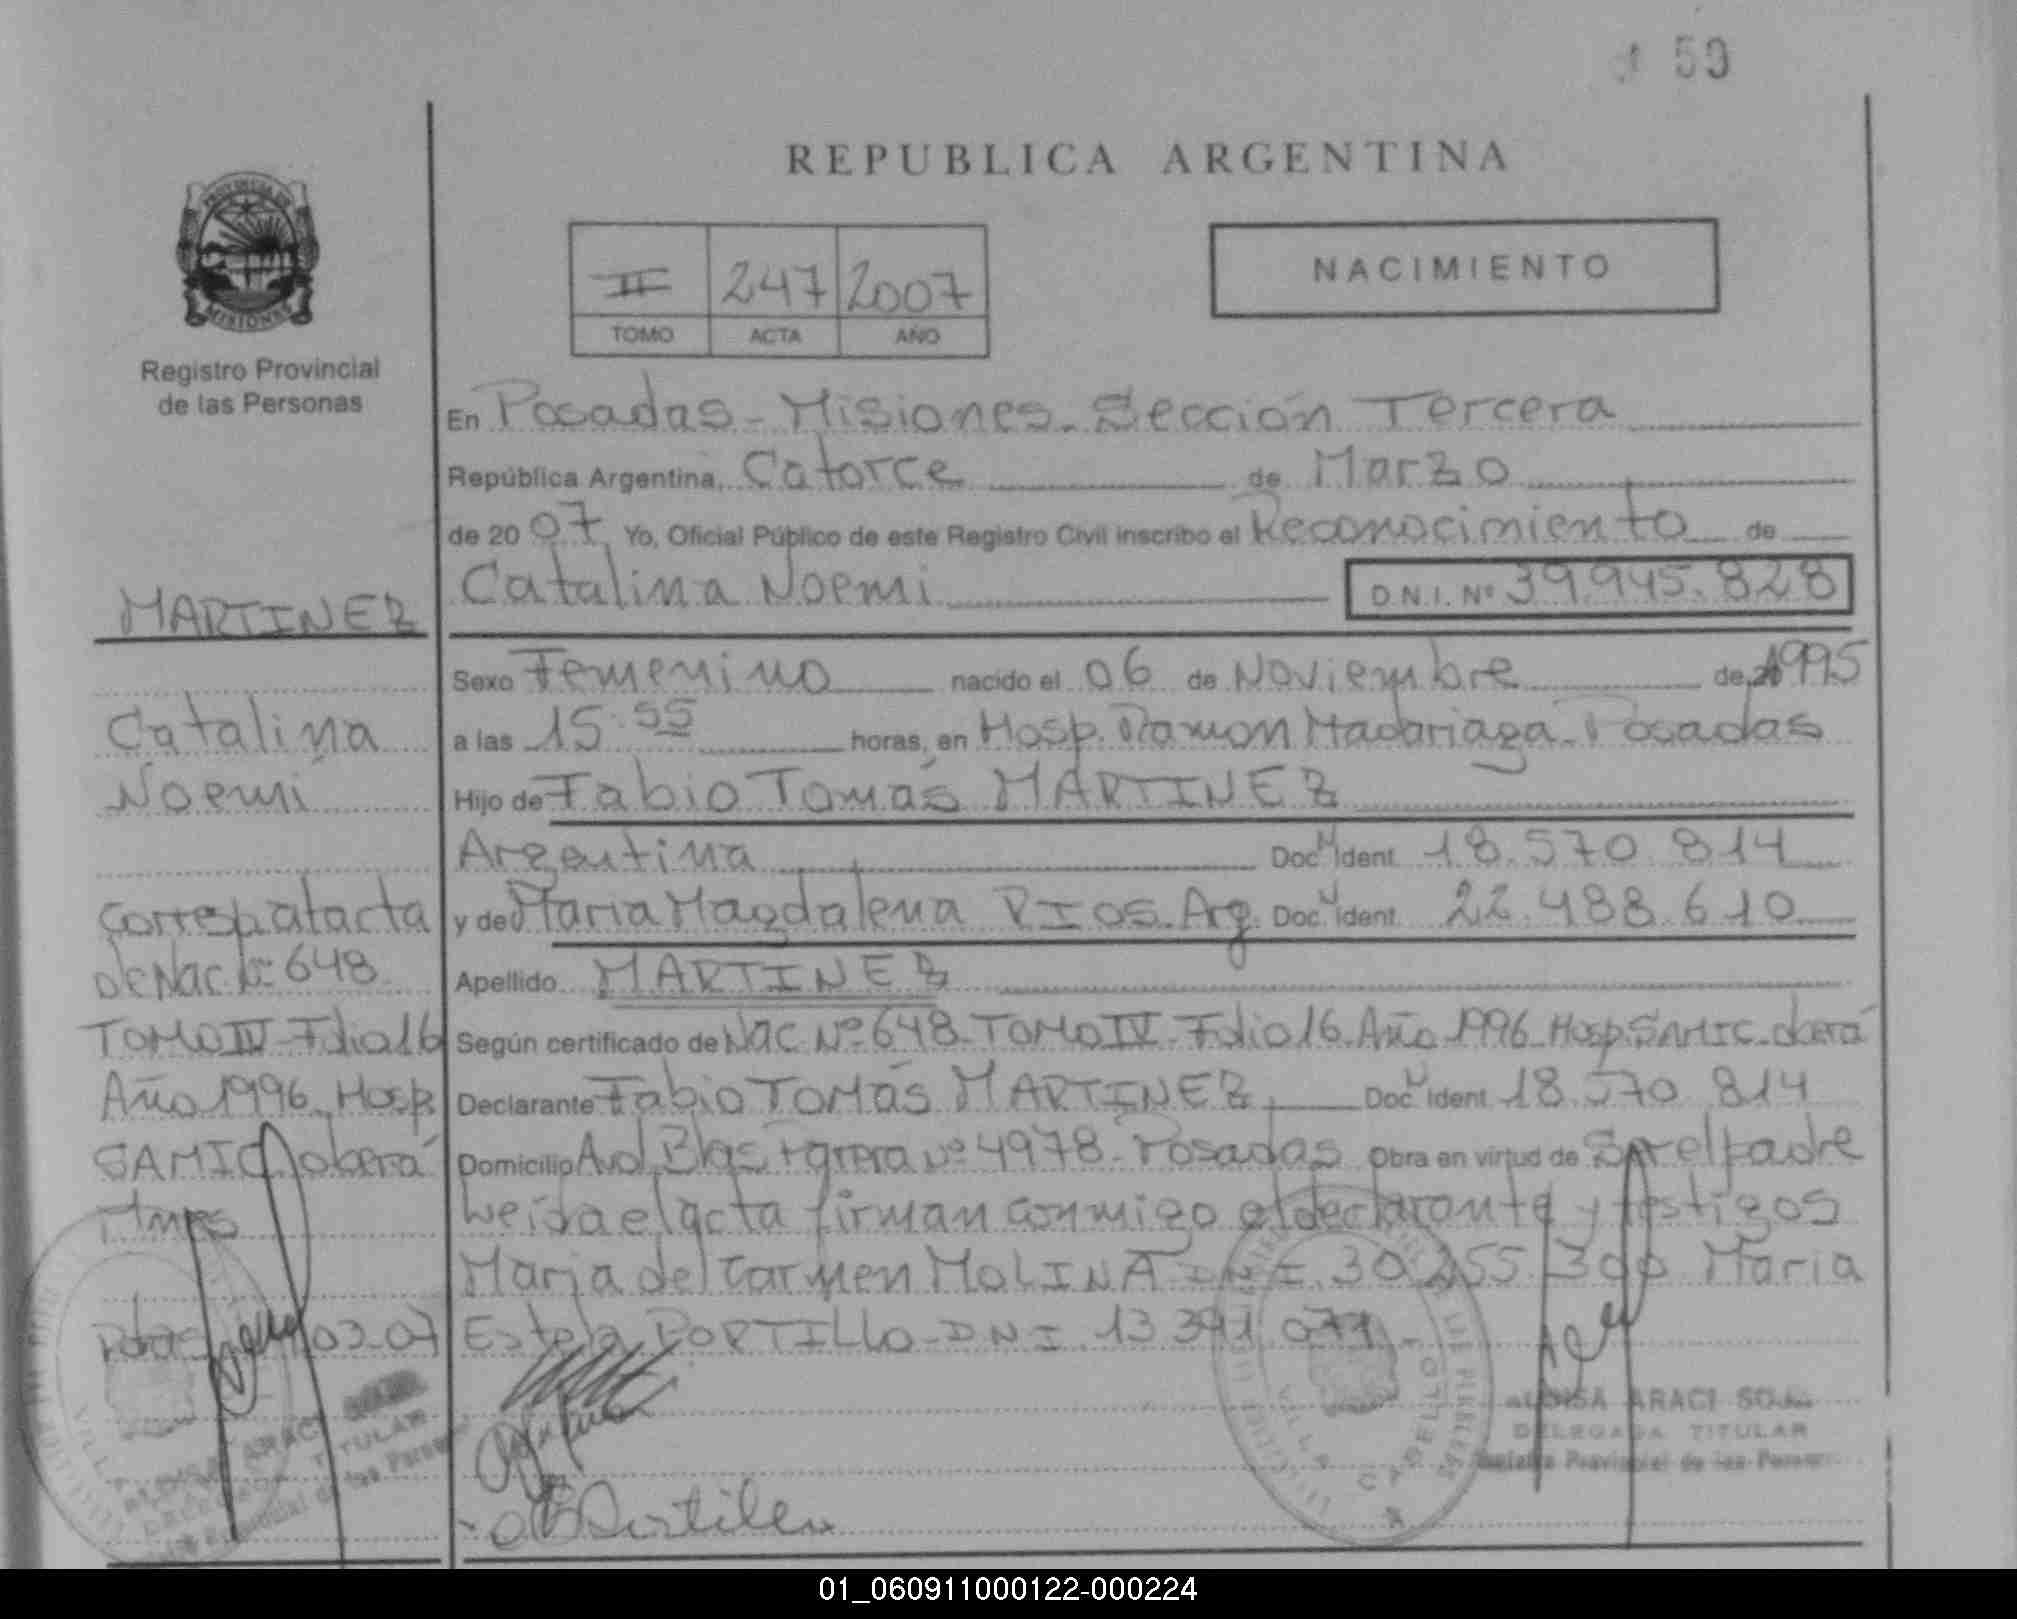 50
REPUBLICA ARGENTINA
PROVINCIA DE
MISIONES
II 247 2007
TOMO ACTA AÑO
NACIMIENTO
Registro Provincial
de las Personas
En Posadas - Misiones. Sección Tercera
República Argentina, Catorce de Marzo
de 2007 Yo, Oficial Público de este Registro Civil inscribo el Reconocimiento de
Catalina Noemi D.N.I. Nº 39.945.828
Sexo Femenino nacido el 06 de Noviembre de 1995
a las 15.55 horas, en Hosp. Ramon Madariaga - Posadas
Hijo de Fabio Tomás MARTINEZ
Argentina Doc. Ident. 18.570.814
y de Maria Magdalena RIOS. Arg. Doc. Ident. 22.488.610
Apellido MARTINEZ
Según certificado de Nac Nº 648 - TOMO IV - Folio 16. Año 1996. Hosp. SAMIC - oberá
Declarante Fabio TOMás MARTINEZ Doc. Ident. 18.570.814
Domicilio Avd. Blas Parera Nº 4978 - Posadas Obra en virtud de Ser el padre
Leida el acta firman conmigo el declarante y testigos
Maria del Carmen MOLINA DNI. 30.255.300 Maria
Estela PORTILLO - DNI. 13.391.077 -
MARTINEZ
Catalina
Noemí
Corresp al acta
de Nac. Nº 648
TOMO IV - Folio 16
Año 1996. Hosp
SAMIC oberá
Mnes
03-07
ARACI
TITULAR
VILLA CABELLO
ARACI
DELEGADA TITULAR
Registro Provincial de las Personas
01_060911000122-000224